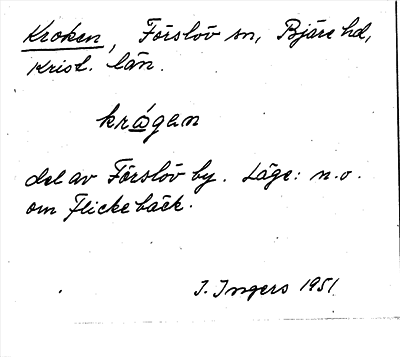 Kroken, Förslöv sn, Bjäre hd,
Krist. län.
krågen
del av Förslöv by. Läge: n.o.
om Flickebäck.
I. Ingers 1951